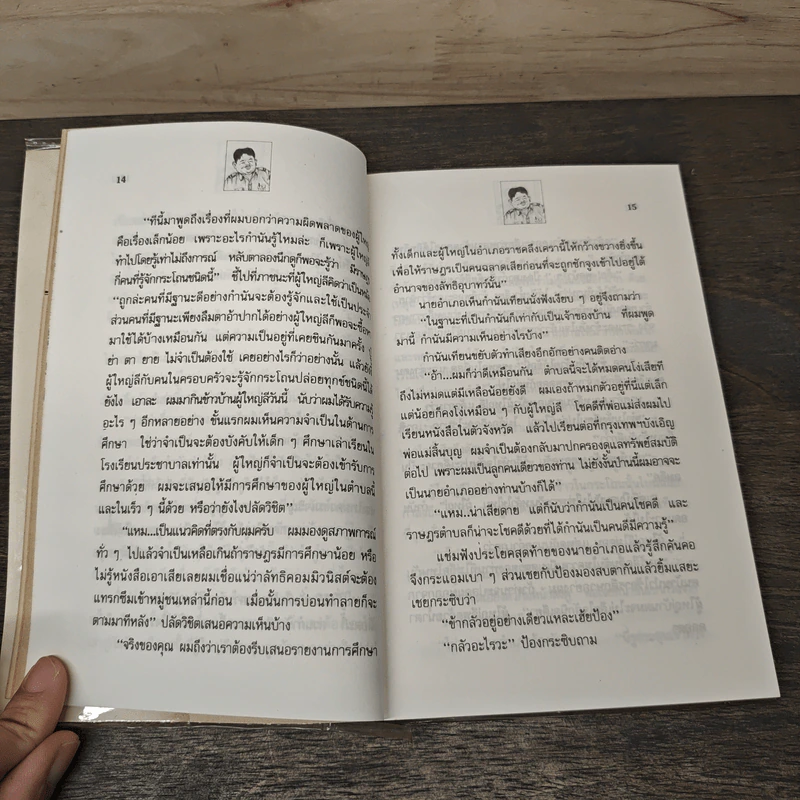 14
"ทีนี้มาพูดถึงเรื่องที่ผมบอกว่าความผิดพลาดของผู้ใหญ่
คือเรื่องเล็กน้อย เพราะอะไรกำนันรู้ไหมล่ะ ก็เพราะผู้ใหญ่
ทำไปโดยรู้เท่าไม่ถึงการณ์ หลับตาลองนึกดูก็พอจะรู้ว่า
กี่คนที่รู้จักกระโถนชนิดนี้" ชี้ไปที่ภาชนะที่ผู้ใหญ่ลีคิดว่าเป็น
"ถูกล่ะคนที่มีฐานะดีอย่างกำนันจะต้องรู้จักและใช้เป็น
ส่วนคนที่มีฐานะเพียงลืมตาอ้าปากได้อย่างผู้ใหญ่ลีก็พอจะซื้อ
มาใช้ได้บ้างเหมือนกัน แต่ความเป็นอยู่ที่เคยชินกันมาครั้ง
ย่า ตา ยาย ไม่จำเป็นต้องใช้ เคยอย่างไรก็ว่าอย่างนั้น แล้ว
ผู้ใหญ่ลีกับคนในครอบครัวจะรู้จักกระโถนปล่อยทุกข์ชนิดนี้ได้
ยังไง เอาละ ผมมากินข้าวบ้านผู้ใหญ่ลีวันนี้ นับว่าผมได้รับความรู้
อะไร ๆ อีกหลายอย่าง ขั้นแรกผมเห็นความจำเป็นในด้านการ
ศึกษา ใช่ว่าจำเป็นจะต้องบังคับให้เด็ก ๆ ศึกษาเล่าเรียนใน
โรงเรียนประชาบาลเท่านั้น ผู้ใหญ่ก็จำเป็นจะต้องเข้ารับการ
ศึกษาด้วย ผมจะเสนอให้มีการศึกษาของผู้ใหญ่ในตำบลนี้
และในเร็ว ๆ นี้ด้วย หรือว่ายังไงปลัดวิชิต"
"แหม...เป็นแนวคิดที่ตรงกับผมครับ ผมมองดูสภาพการณ์
ทั่ว ๆ ไปแล้วจำเป็นเหลือเกินถ้าราษฎรมีการศึกษาน้อย หรือ
ไม่รู้หนังสือเอาเสียเลยผมเชื่อแน่ว่าลัทธิคอมมิวนิสต์จะต้อง
แทรกซึมเข้าหมู่ชนเหล่านี้ก่อน เมื่อนั้นการบ่อนทำลายก็จะ
ตามมาทีหลัง" ปลัดวิชิตเสนอความเห็นบ้าง
"จริงของคุณ ผมถึงว่าเราต้องรีบเสนอรายงานการศึกษา
15
ทั้งเด็กและผู้ใหญ่ในอำเภอราชคลึงเครานี้ให้กว้างขวางยิ่งขึ้น
เพื่อให้ราษฎรเป็นคนฉลาดเสียก่อนที่จะถูกชักจูงเข้าไปอยู่ใต้
อำนาจของลัทธิอุบาทว์นั้น"
นายอำเภอเห็นกำนันเทียนนั่งฟังเงียบ ๆ อยู่จึงถามว่า
"ในฐานะที่เป็นกำนันก็เท่ากับเป็นเจ้าของบ้าน ที่ผมพูด
มานี้ กำนันมีความเห็นอย่างไรบ้าง"
กำนันเทียนขยับตัวทำเสียงอึกอักอย่างคนติดอ่าง
"อ้า...ผมก็ว่าดีเหมือนกัน ตำบลนี้จะได้หมดคนโง่เสียที
ถึงไม่หมดแต่มีเหลือน้อยยังดี ผมเองถ้าหมกตัวอยู่ที่นี่แต่เล็ก
แต่น้อยก็คงโง่เหมือน ๆ กับผู้ใหญ่ลี โชคดีที่พ่อแม่ส่งผมไป
เรียนหนังสือในตัวจังหวัด แล้วไปเรียนต่อที่กรุงเทพฯบังเอิญ
พ่อแม่สิ้นบุญ ผมจำเป็นต้องกลับมาปกครองดูแลทรัพย์สมบัติ
ต่อไป เพราะผมเป็นลูกคนเดียวของท่าน ไม่ยังงั้นป่านนี้ผมอาจจะ
เป็นนายอำเภออย่างท่านบ้างก็ได้"
"แหม...น่าเสียดาย แต่ก็นับว่ากำนันเป็นคนโชคดี และ
ราษฎรตำบลก็น่าจะโชคดีด้วยที่ได้กำนันเป็นคนดีมีความรู้"
แช่มฟังประโยคสุดท้ายของนายอำเภอแล้วรู้สึกคันคอ
จึงกระแอมเบา ๆ ส่วนเชยกับป้องมองสบตากันแล้วยิ้มแสยะ
เชยกระซิบว่า
"ข้ากลัวอยู่อย่างเดียวแหละเฮ้ยป้อง"
"กลัวอะไรวะ" ป้องกระซิบถาม